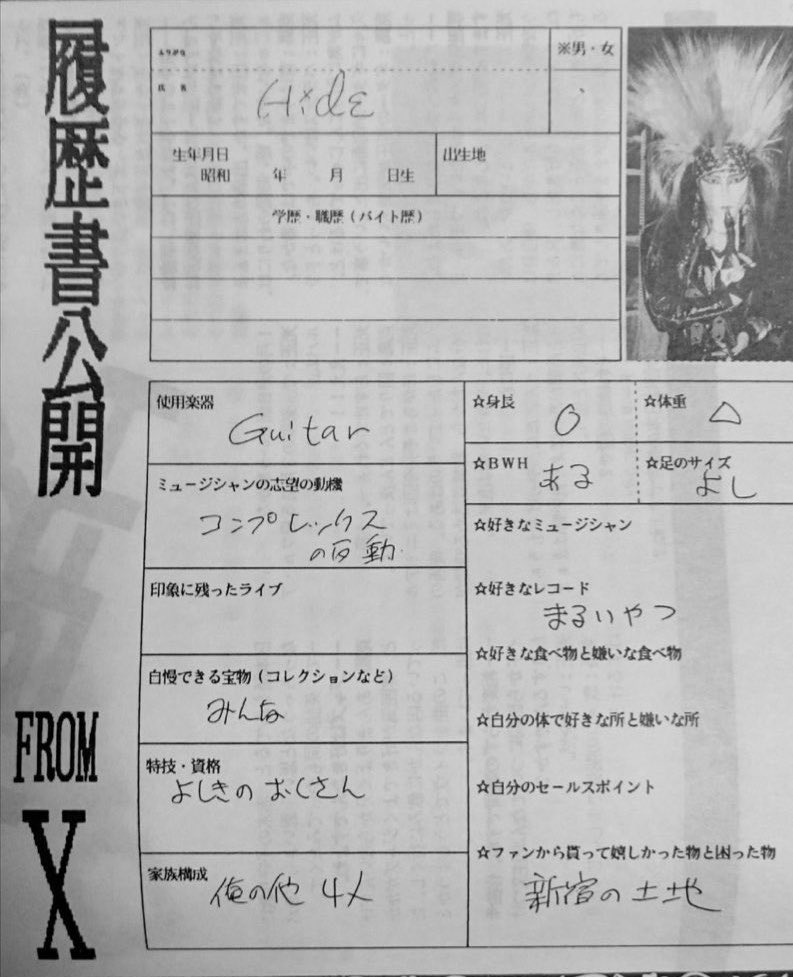 履歴書公開
FROM
X
ふりがな
氏 名
Hide
※男・女
生年月日
昭和 年 月 日生
出生地
学歴・職歴(バイト歴)
使用楽器
Guitar
ミュージシャンの志望の動機
コンプレックス
の反動.
印象に残ったライブ
自慢できる宝物(コレクションなど)
みんな
特技・資格
よしきのおくさん
家族構成
俺の他 4人
☆身長
○
☆体重
△
☆BWH
ある
☆足のサイズ
よし
☆好きなミュージシャン
☆好きなレコード
まるいやつ
☆好きな食べ物と嫌いな食べ物
☆自分の体で好きな所と嫌いな所
☆自分のセールスポイント
☆ファンから貰って嬉しかった物と困った物
新宿の土地